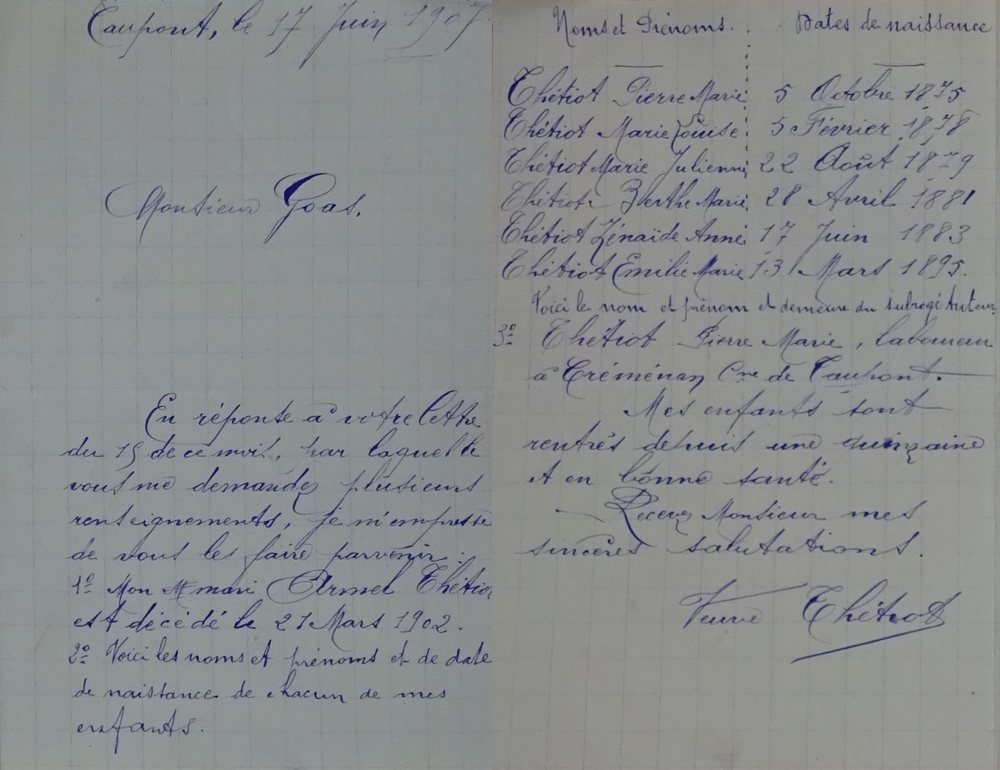 Taupont, le 17 Juin 1907
Monsieur Goas.
En réponse à votre lettre
du 15 de ce mois, par laquelle
vous me demandez plusieurs
renseignements, je m'empresse
de vous les faire parvenir :
1º Mon mari Armel Thétiot
est décédé le 21 Mars 1902.
2º Voici les noms et prénoms et de date
de naissance de chacun de mes
enfants.
Noms et Prénoms. Dates de naissance
Thétiot Pierre Marie 5 Octobre 1875
Thétiot Marie Louise 5 Février 1878
Thétiot Marie Julienne 22 Août 1879
Thétiot Berthe Marie 28 Avril 1881
Thétiot Zénaïde Anne 17 Juin 1883
Thétiot Emilie Marie 13 Mars 1895.
Voici le nom et prénom et demeure du subrogé tuteur
3º Thétiot Pierre Marie, laboureur
à Créménan Cne de Taupont.
Mes enfants sont
rentrés depuis une quinzaine
et en bonne santé.
Recevez Monsieur mes
sincères salutations.
Veuve Thétiot